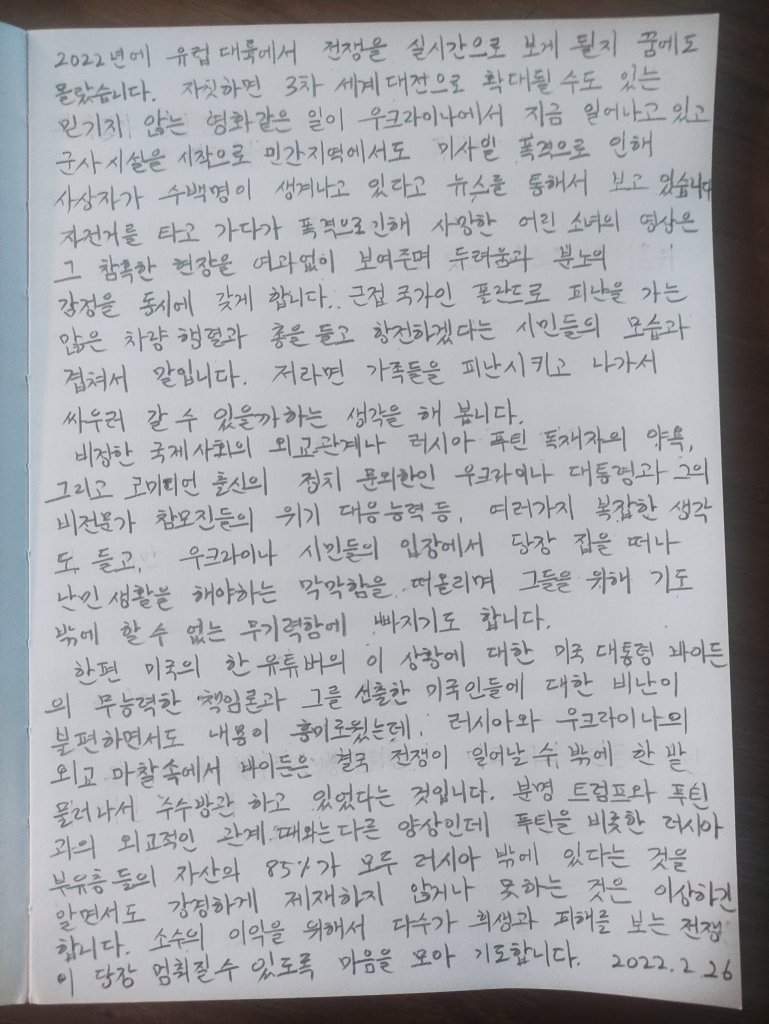 2022년에 유럽 대륙에서 전쟁을 실시간으로 보게 될지 꿈에도
몰랐습니다. 자칫하면 3차 세계대전으로 확대될 수도 있는
믿기지 않는 영화같은 일이 우크라이나에서 지금 일어나고 있고
군사시설을 시작으로 민간지역에서도 미사일 폭격으로 인해
사상자가 수백명이 생겨나고 있다고 뉴스를 통해서 보고 있습니다
자전거를 타고 가다가 폭격으로 인해 사망한 어린 소녀의 영상은
그 참혹한 현장을 여과없이 보여주며 두려움과 분노의
감정을 동시에 갖게 합니다. 근접 국가인 폴란드로 피난을 가는
많은 차량 행렬과 총을 들고 항전하겠다는 시민들의 모습과
겹쳐서 말입니다. 저라면 가족들을 피난시키고 나가서
싸우러 갈 수 있을까하는 생각을 해 봅니다.
비정한 국제사회의 외교관계나 러시아 푸틴 독재자의 야욕,
그리고 코미디언 출신의 정치 문외한인 우크라이나 대통령과 그의
비전문가 참모진들의 위기 대응능력 등, 여러가지 복잡한 생각
도 들고, 우크라이나 시민들의 입장에서 당장 집을 떠나
난민생활을 해야하는 막막함을 떠올리며 그들을 위해 기도
밖에 할 수 없는 무기력함에 빠지기도 합니다.
한편 미국의 한 유튜버의 이 상황에 대한 미국 대통령 바이든
의 무능력한 책임론과 그를 선출한 미국인들에 대한 비난이
불편하면서도 내용이 흥미로웠는데, 러시아와 우크라이나의
외교 마찰속에서 바이든은 결국 전쟁이 일어날 수 밖에 한 발
물러나서 수수방관 하고 있었다는 것입니다. 분명 트럼프와 푸틴
과의 외교적인 관계 때와는 다른 양상인데 푸틴을 비롯한 러시아
부유층들의 자산의 85%가 모두 러시아 밖에 있다는 것을
알면서도 강경하게 제재하지 않거나 못하는 것은 이상하긴
합니다. 소수의 이익을 위해서 다수가 희생과 피해를 보는 전쟁
이 당장 멈춰질 수 있도록 마음을 모아 기도합니다. 2022.2.26